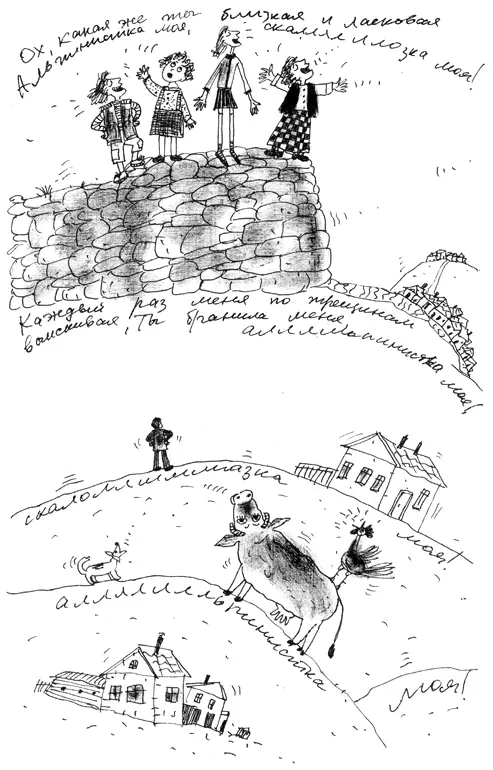 Ох, какая же ты близкая и ласковая
Альпинистка моя, скаллллелозка моя!
Каждый раз меня по трещинам
выискивая, Ты бранила меня
аллллпинистка моя!
скалоллллллазка
моя!
аллллллльпинистка
моя!